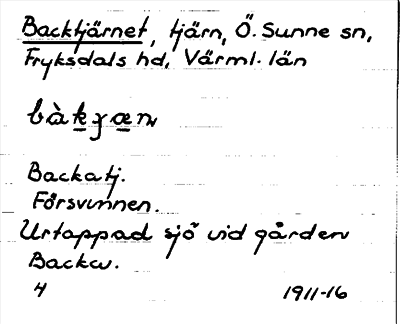 Backtjärnet, tjärn, Ö. Sunne sn,
Fryksdals hd, Värml. län
Backatj.
Försvunnen.
Urtappad sjö vid gården
Backa.
4 1911-16